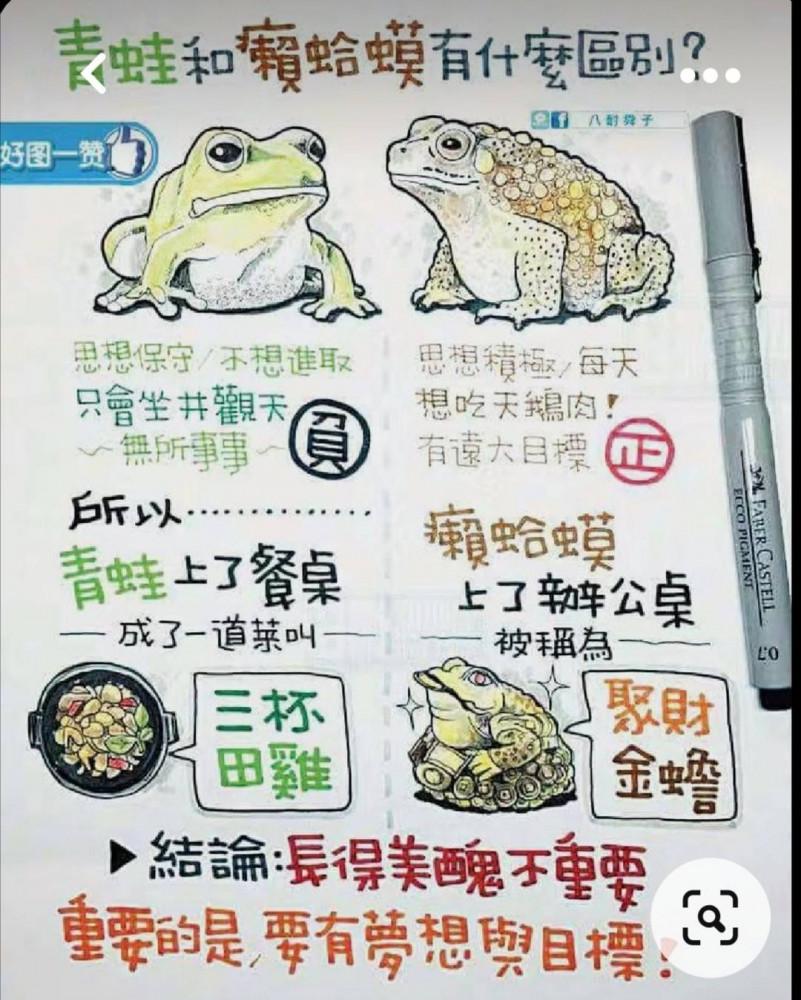 青蛙和癩蛤蟆有什麼區別?
好图一赞
八耐舜子
思想保守/不想進取
只會坐井觀天
~無所事事~
負
所以············
青蛙上了餐桌
成了一道菜叫
三杯
田雞
思想積極/每天
想吃天鵝肉!
有遠大目標
正
癩蛤蟆
上了辦公桌
被稱為
聚財
金蟾
FABER CASTELL
ECCO PIGMENT
0.7
▶結論:長得美醜不重要
重要的是,要有夢想與目標!